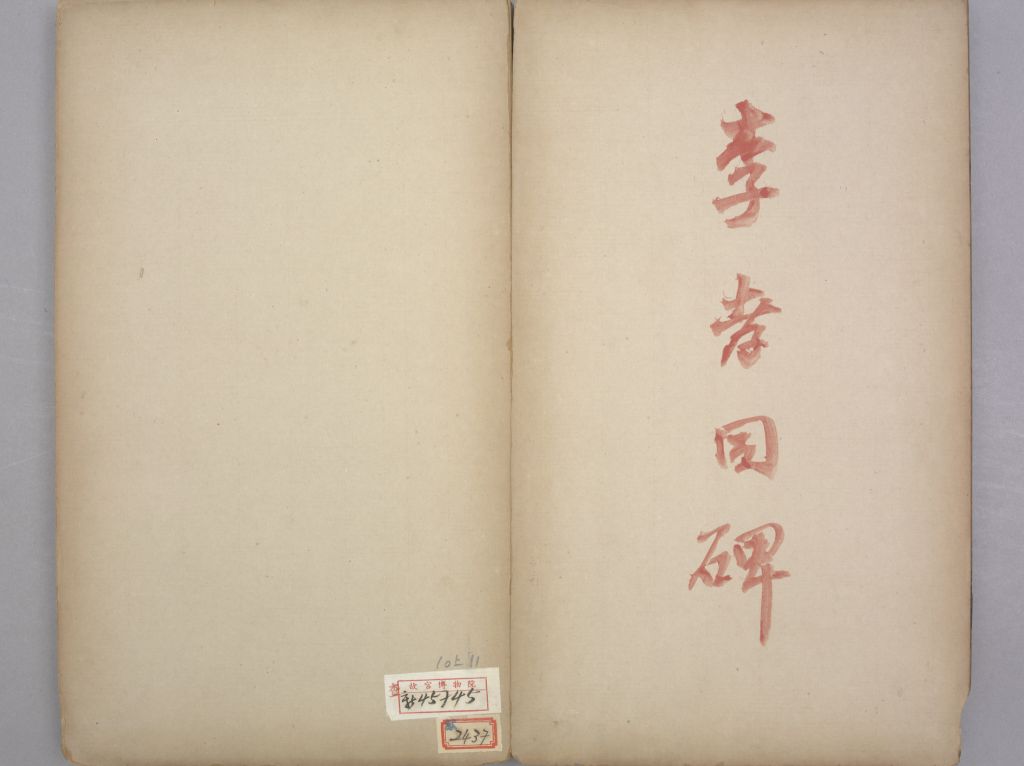 李孝同碑
10上11
故宫博物院
新45745
2437